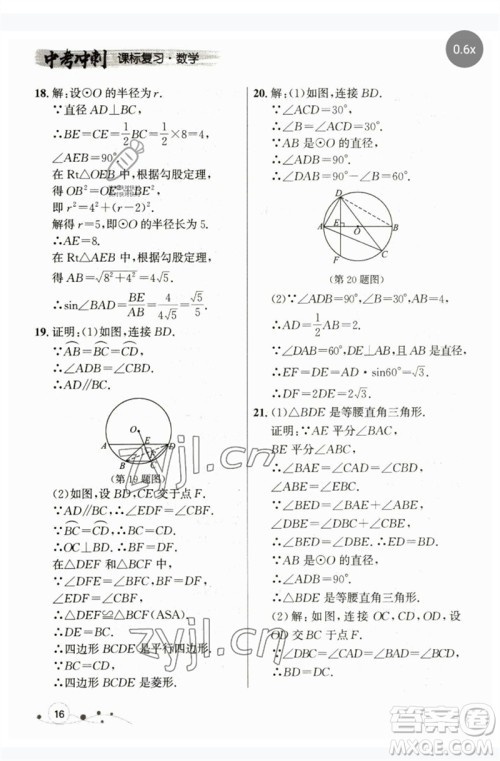 中考冲刺 课标复习·数学
0.6x
18. 解：设⊙O的半径为r.
∵直径AD⊥BC,
∴BE=CE=1/2BC=1/2×8=4,
∠AEB=90°.
在Rt△OEB中,根据勾股定理,
得OB²=OE²+BE²,
即r²=4²+(r-2)².
解得r=5,即⊙O的半径长为5.
∴AE=8.
在Rt△AEB中,根据勾股定理,
得AB=√(8²+4²)=4√5.
∴sin∠BAD=BE/AB=4/(4√5)=√5/5.
19. 证明：(1)如图,连接BD.
∵AB=BC=CD,
∴∠ADB=∠CBD.
∴AD∥BC.
O
A
E
D
B
C
(第19题图)
(2)如图,设BD,CE交于点F.
∵AD∥BC,
∴∠EDF=∠CBF.
∵BC=CD,
∴BC=CD.
在△DEF和△BCF中,
∴△DEF≌△BCF(ASA).
∴DE=BC.
∴四边形BCDE是平行四边形.
∵BC=CD,
∴四边形BCDE是菱形.
16
20. 解：(1)如图,连接BD.
∵∠ACD=30°,
∴∠B=∠ACD=30°.
∵AB是⊙O的直径,
∴∠ADB=90°.
∴∠DAB=90°-∠B=60°.
D
A
E
O
B
F
C
(第20题图)
(2)∵∠ADB=90°,∠B=30°,
∴AD=1/2AB=2.
∵∠DAB=60°,DE⊥AB,且AB是直径,
∴EF=DE=AD·sin60°=√3.
∴DF=2DE=2√3.
21. (1)△BDE是等腰直角三角形.
证明：∵AE平分∠BAC,
BE平分∠ABC,
∴∠BAE=∠CAD=∠CBD,
∠ABE=∠EBC.
∵∠BED=∠BAE+∠ABE,
∠DBE=∠DBC+∠CBE,
∴∠BED=∠DBE.
∴BD=ED.
∵AB为⊙O的直径,
∴∠ADB=90°.
∴△BDE是等腰直角三角形.
(2)解：如图,连接OC,CD,OD,
OD交BC于点F.
∵∠DBC=∠CAD=∠BAD=
∠BCD,
∴BD=DC.
zyjl.cn
zyjl.cn
作业精灵